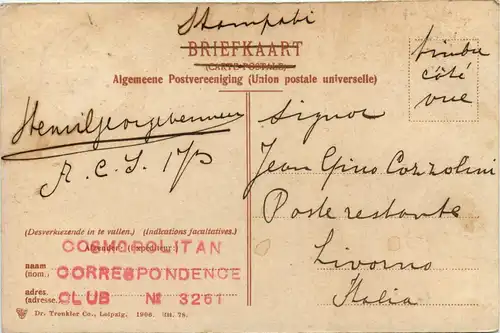 Stampati
BRIEFKAART
(CARTE POSTALE)
Algemeene Postvereeniging (Union postale universelle)
timbre
côté
vue
Signor
Jean Gino Cozzolini
Poste restante
Livorno
Italia
A. C. S.
(Desverkiezende in te vullen.) (Indications facultatives.)
Afzender (Expediteur:)
COSMOPOLITAN
naam
(nom.
CORRESPONDENCE
adres.
(adresse.)
CLUB No 3261
Dr. Trenkler Co., Leipzig. 1906. Htl. 78.